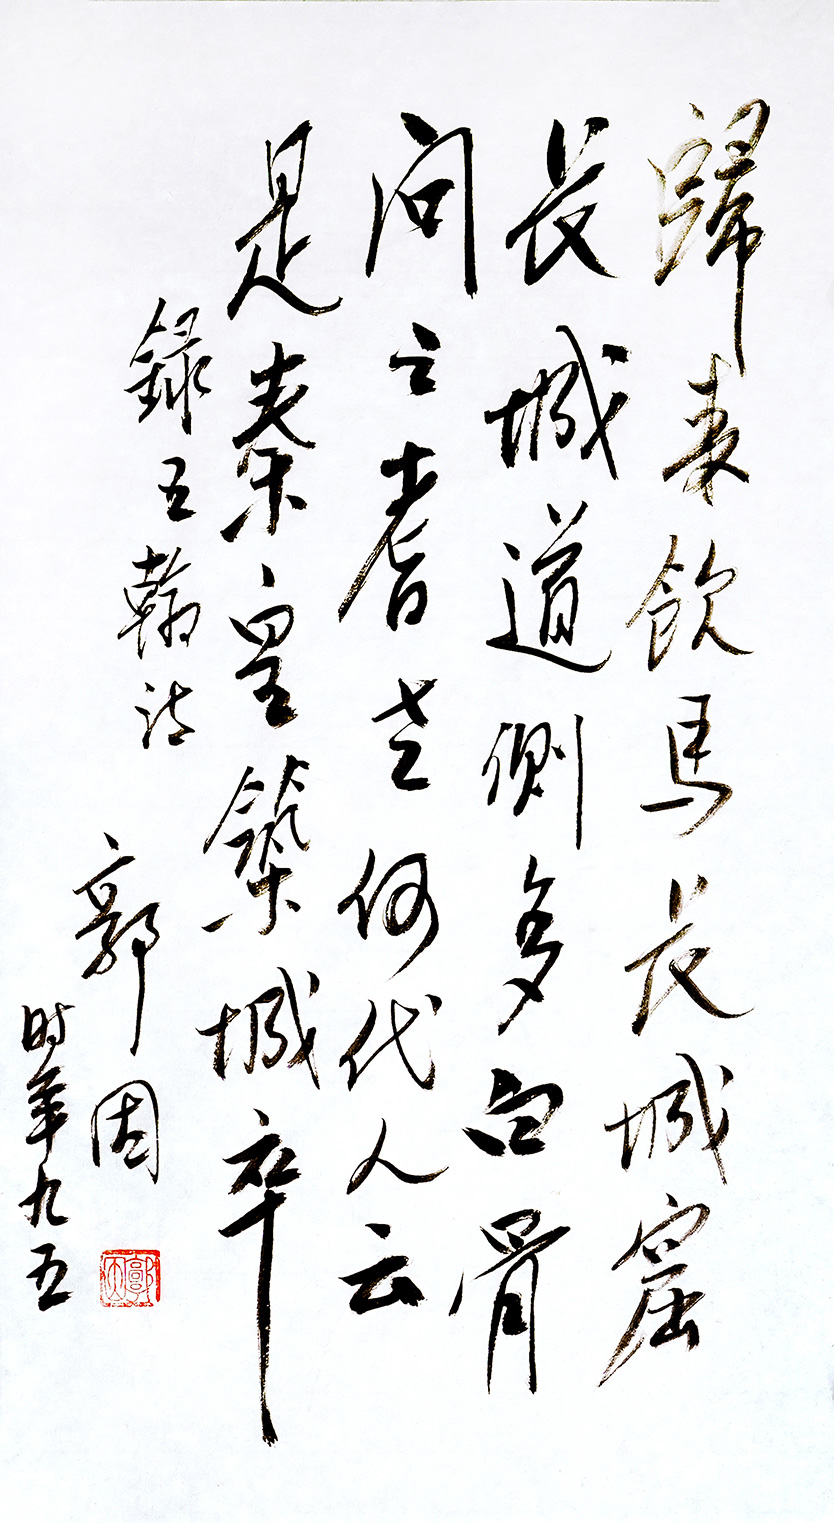 歸來飲馬長城窟
長城道側多白骨
問之耆老何代人云
是秦皇築城卒
録王翰詩
郭因
时年九五
郭因